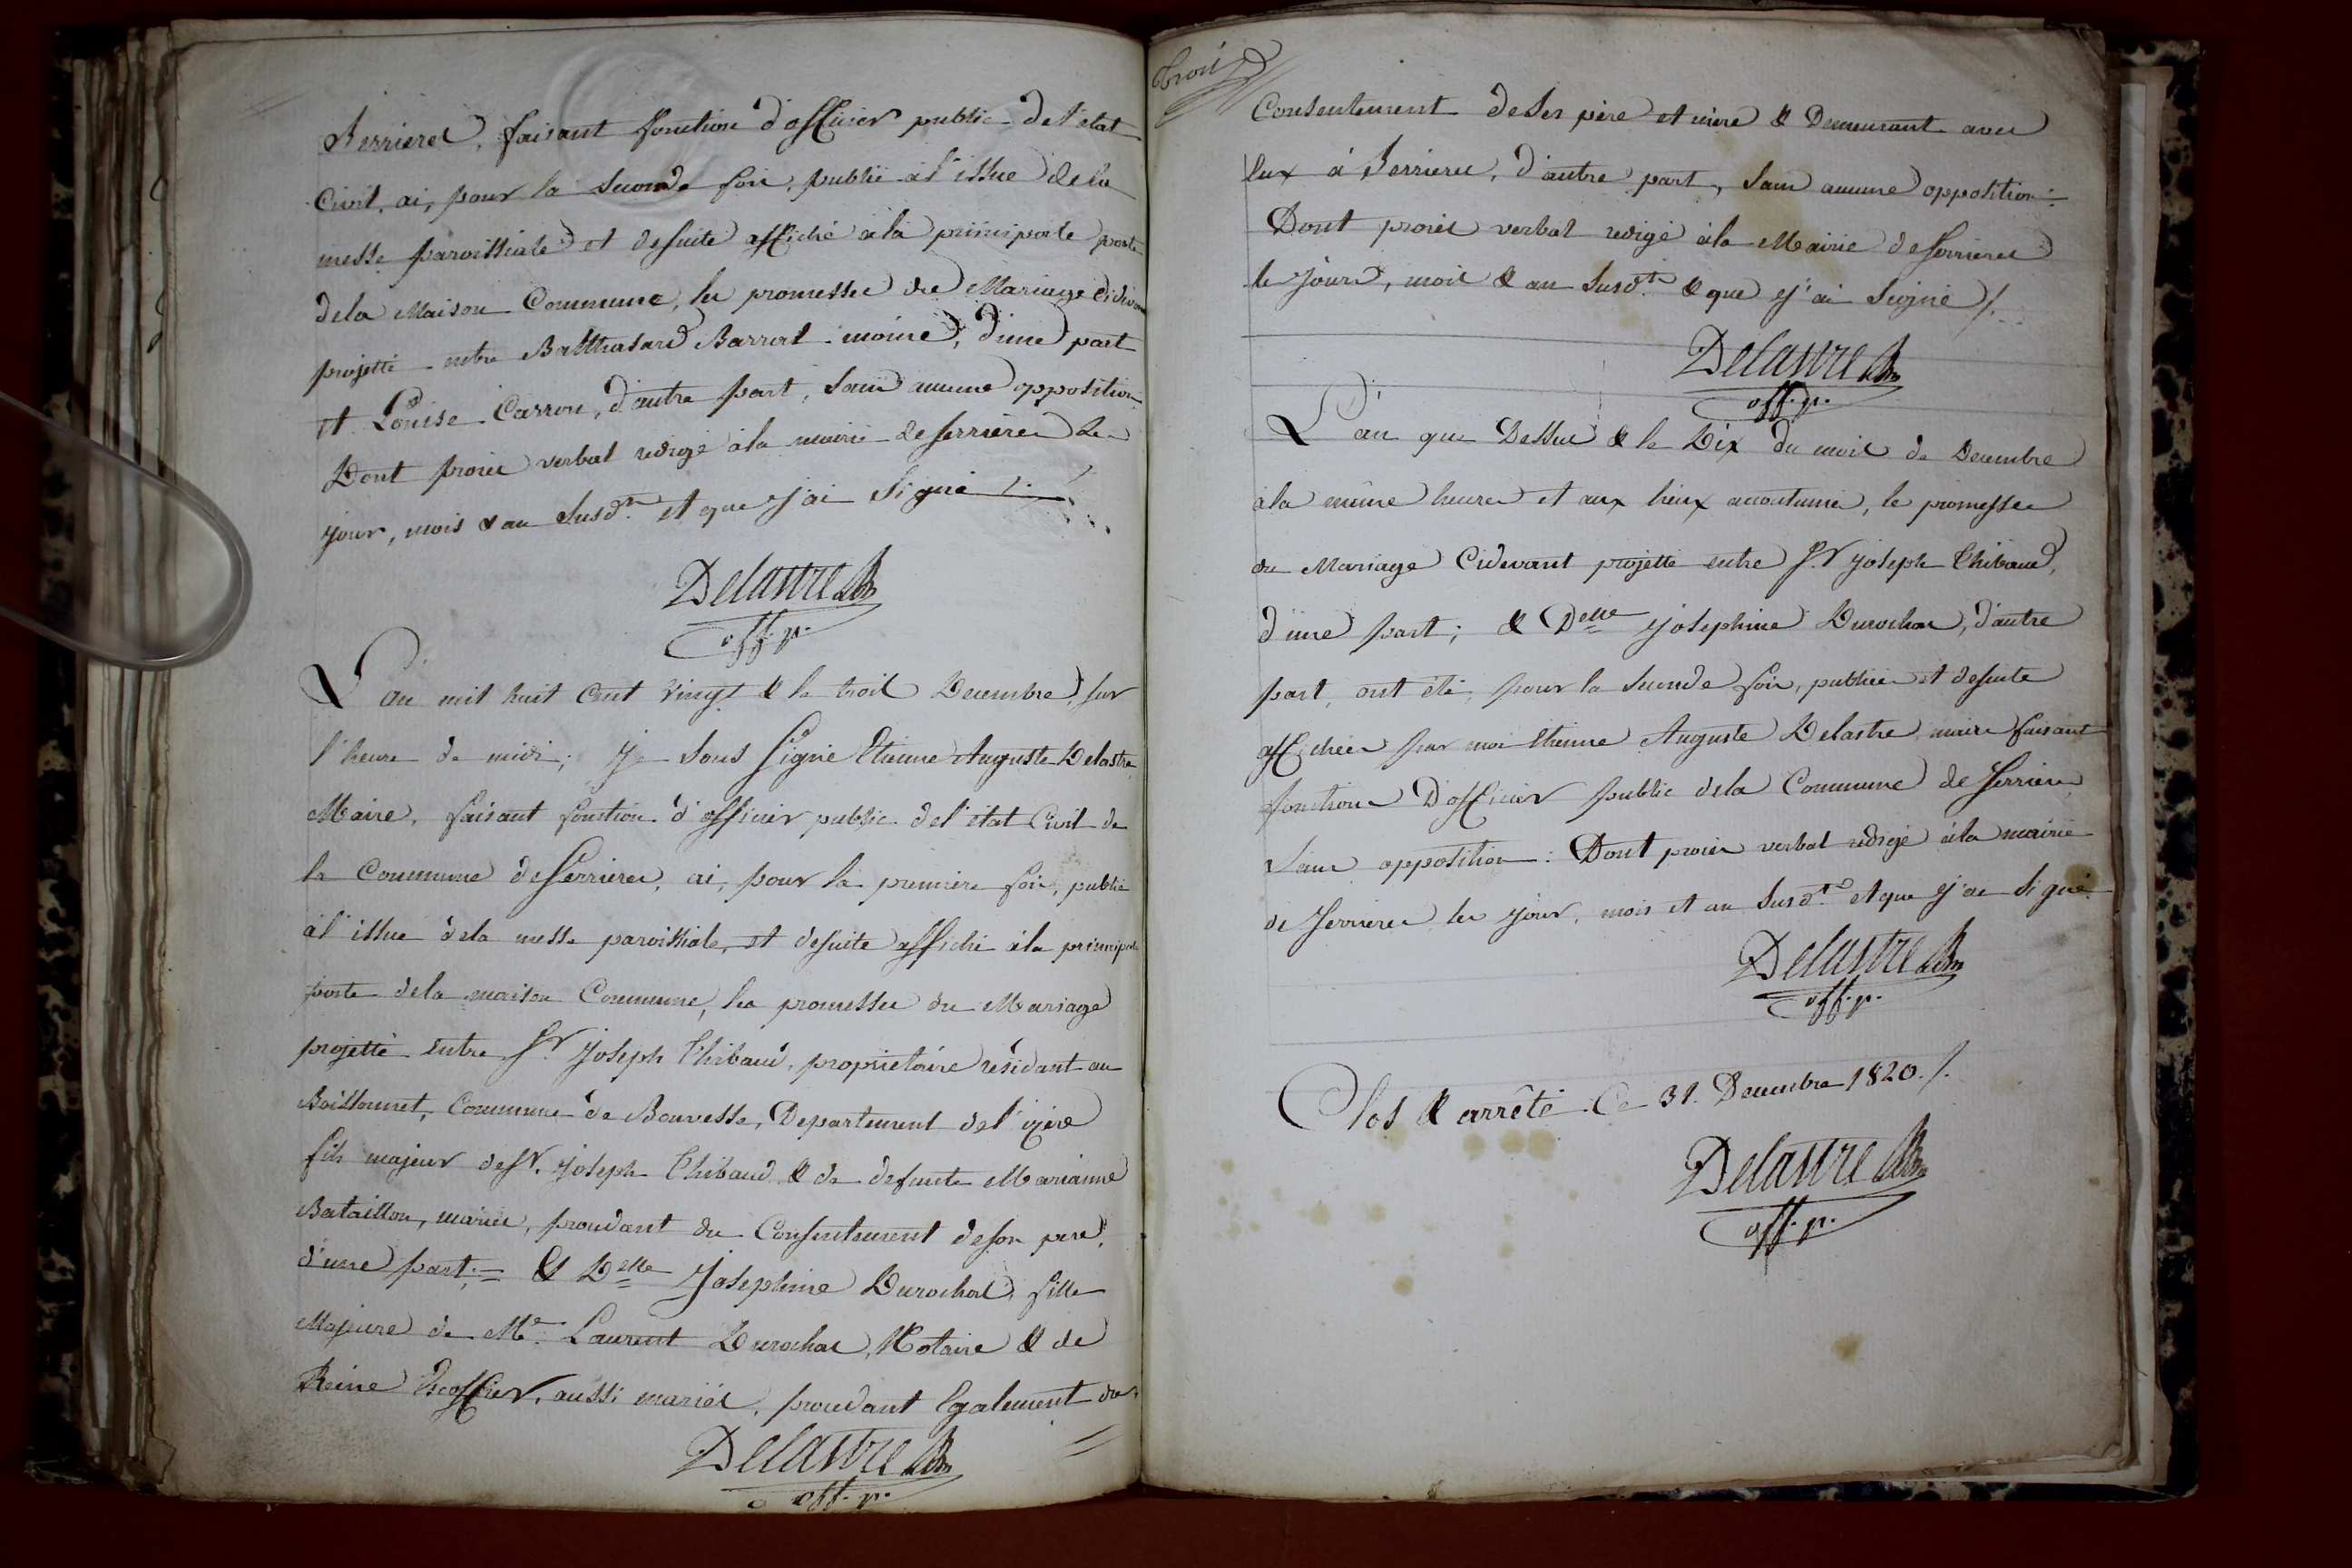 Serrieres, faisant fonction d'officier public de l'etat
Civil, ai, pour la seconde fois, publié à l'issue de la
messe paroissiale et desuite affiché à la principale porte
dela Maison Commune, les promesses de Mariage cidevant
projetté entre Balthasard Barrat moine, d'une part
et Louise Carron, d'autre part, sans aucune opposition.
Dont procès verbal redigé à la mairie de serrieres les
jour, mois & an susdts et que j'ai signé ./.
Delastre
off. p.
L'an mil huit cent vingt & le trois Decembre, sur
l'heure de midi; Je sous signé Etienne Auguste Delastre
Maire, faisant fonction d'officier public del'état Civil de
la Commune de serrieres, ai, pour la premiere fois, publié
à l'issue dela messe paroissiale, et desuite affiché à la principale
porte dela maison Commune, les promesses du Mariage
projetté entre Sr. Joseph Thibaud, propriétaire résidant au
Boissonnet, Commune de Bouvesse, Departement del'izère
fils majeur de Sr. Joseph Thibaud & de defunte Marianne
Bataillon, mariés, procedant du Consentement deson pere,
d'une part; = & Delle Josephine Durochat, fille
Majeure de Me. Laurent Durochat, Notaire & de
Reine Escoffier, aussi mariés, procedant Egalement du
Delastre
off. p.
trois
Consentement deses père et mère & Demeurant avec
Eux à Serrieres, d'autre part, sans aucune opposition.
Dont procès verbal redigé à la Mairie de serrieres
les Jours, mois & an susdts & que j'ai signé ./.
Delastre
off. p.
L'an que Dessus & le Dix du mois de Decembre
à la même heure et aux lieux accoutumés, les promesses
du Mariage Cidevant projetté entre Sr. Joseph Thibaud,
d'une part; & Delle Josephine Durochat, d'autre
part, ont été, pour la seconde fois, publiées et desuite
affichées par moi Etienne Auguste Delastre maire faisant
fonctions D'officier public dela Commune de Serrieres
sans opposition: Dont procès verbal redigé à la mairie
de Serrieres les jour, mois et an susdts et que j'ai signé.
Delastre
off. p.
Clos & arrêté Ce 31. Decembre 1820 ./.
Delastre
off. p.